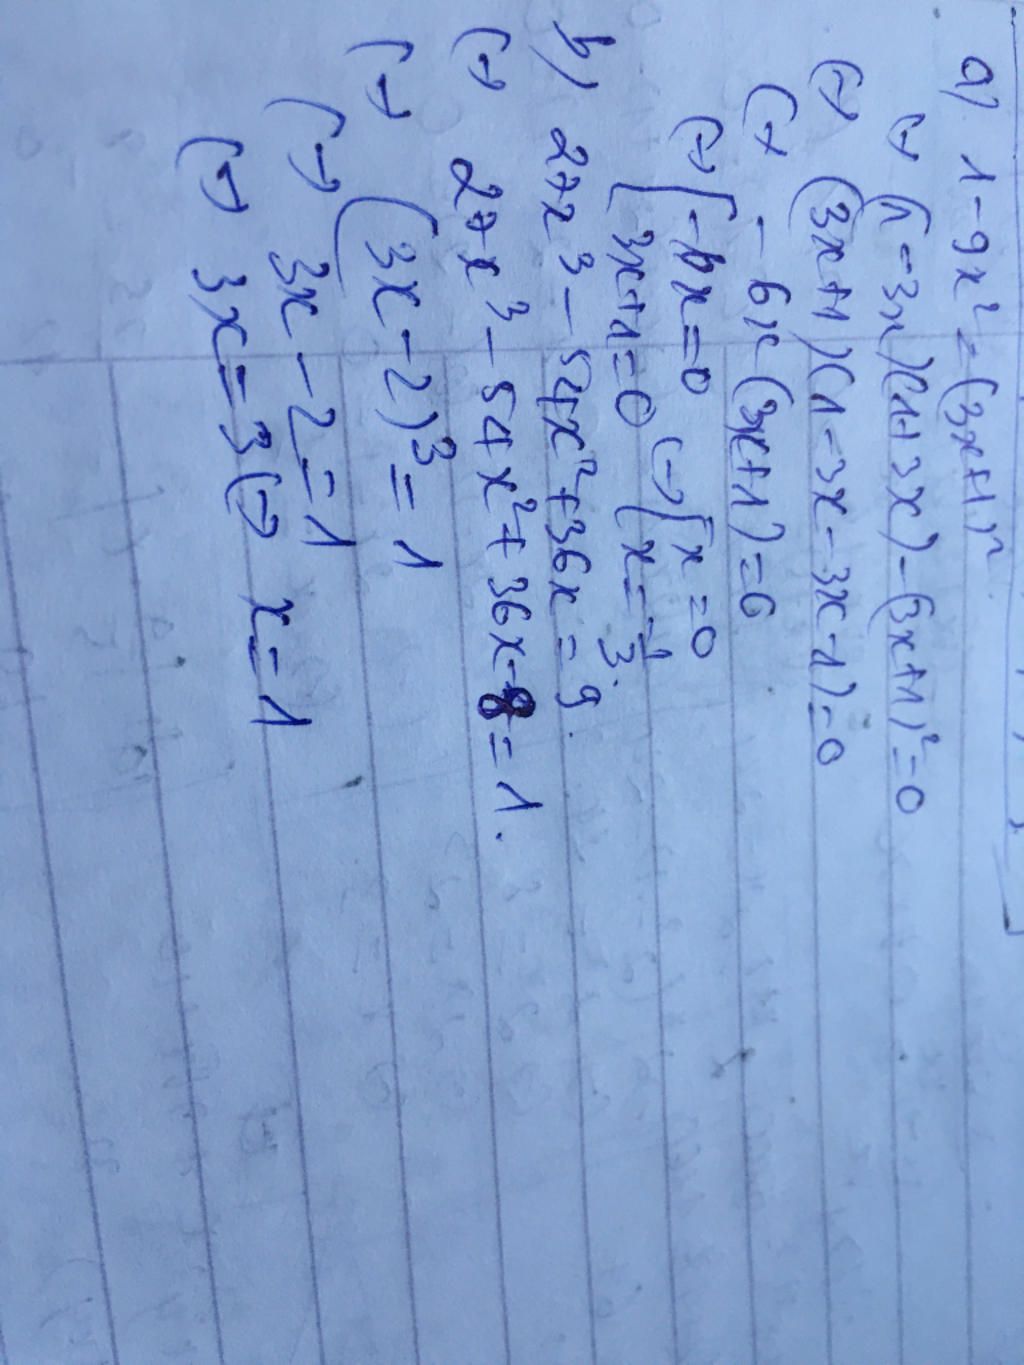 a) 1 - 9x² = (3x+1)².
(→ (1-3x)(1+3x) - (3x+1)² = 0
(→ (3x+1)(1-3x-3x-1) = 0
(→ -6x(3x+1) = 0
(→ [-6x = 0 (→ [x = 0
[3x+1 = 0 [x = -1/3.
b) 27x³ - 54x² + 36x = 9.
(→ 27x³ - 54x² + 36x - 8 = 1.
(→ (3x-2)³ = 1
(→ 3x - 2 = 1
(→ 3x = 3 (→ x = 1